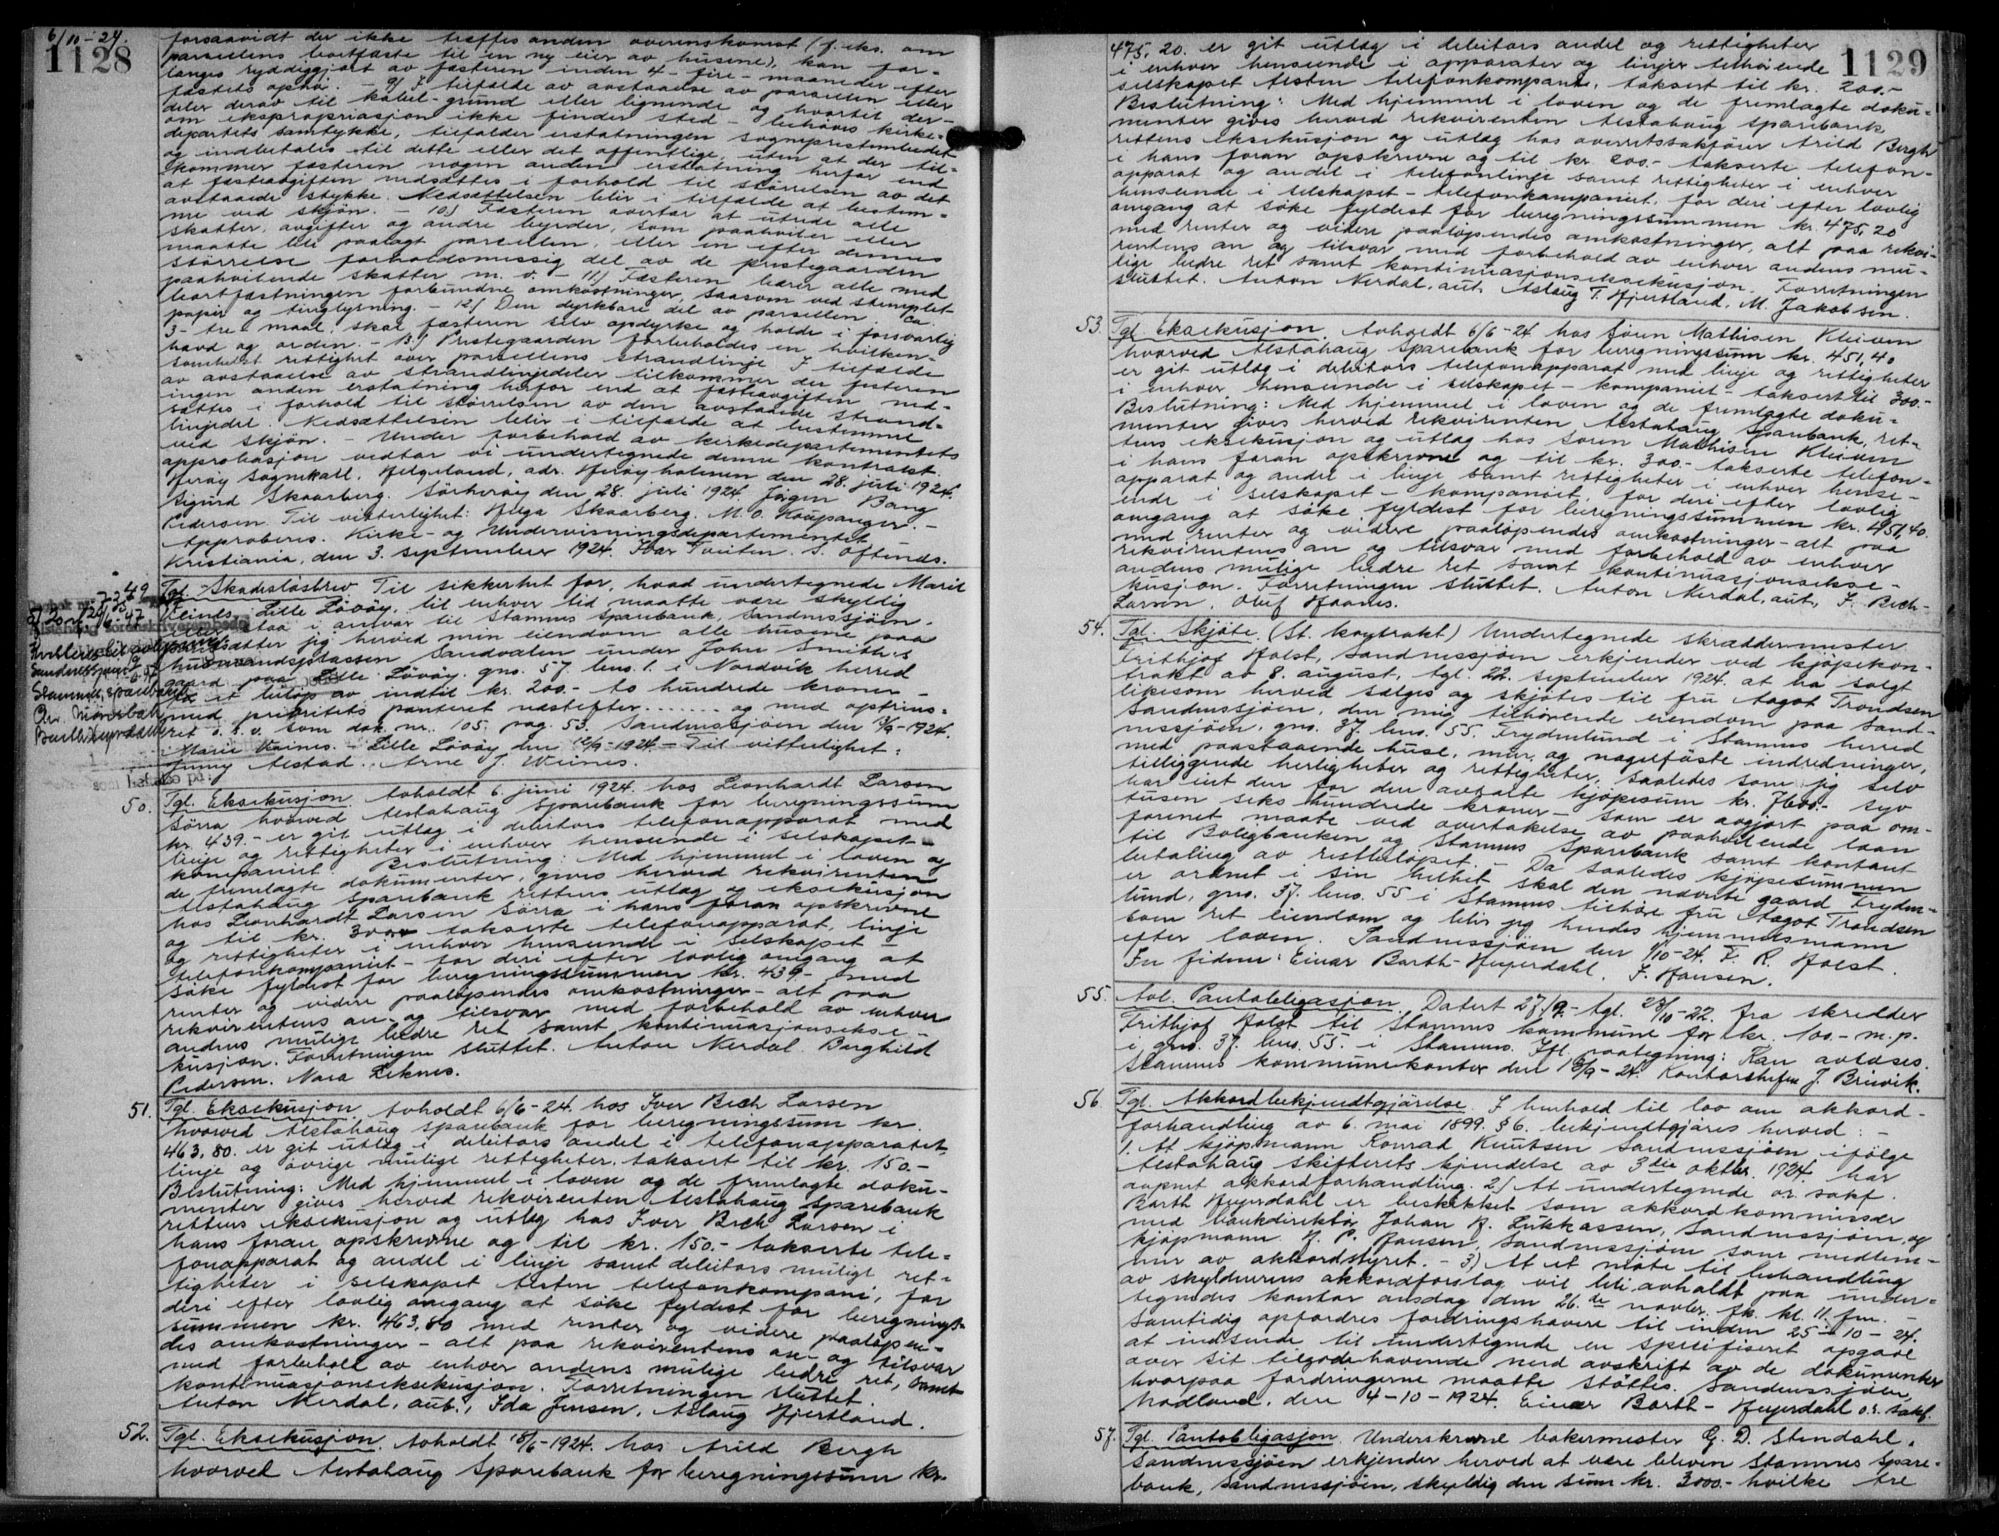 6/10-24.
1128
forsaavidt der ikke træffes anden overenskomst (f. eks. om
parsellens bortfæste til en ny eier av husene), kan for-
langes ryddiggjort av fæsteren inden 4 - fire - maaneder efter
fæstets ophør. - 9) I tilfælde av avstaaelse av parsellen eller
deler derav til kabel-grund eller lignende og hvortil der-
om ekspropriasjon ikke finder sted - behøves kirke-
departets samtykke, tilfalder erstatningen sogneprestembedet
og indbetales til dette eller det offentlige, uten at der til-
kommer fæsteren nogen anden erstatning herfor end
at fæsteavgiften nedsættes i forhold til størrelsen av det
avstaaede stykke. Nedsættelsen blir i tilfælde at bestem-
me ved skjøn. - 10) Fæsteren overtar at utrede alle
skatter, avgifter og andre byrder, som paahviler eller
maatte bli paalagt parsellen, eller en efter dennes
størrelse forholdsmessig del av de prestegaarden
paahvilende skatter m. v. - 11) Fæsteren bærer alle med
bortfæstningen forbundne omkostninger, saasom ved stemplet
papir og tinglysning. 12) Den dyrkbare del av parsellen ca.
3 - tre - maal, skal fæsteren selv opdyrke og holde i forsvarlig
havd og orden. - 13) Prestegaarden forbeholdes en hvilken-
somhelst rettighet over parsellens strandlinje. I tilfælde
av avstaaelse av strandlinjedeler tilkommer der fæsteren
ingen anden erstatning herfor end at fæsteavgiften ned-
sættes i forhold til størrelsen av den avstaaede strand-
linjedel. Nedsættelsen blir i tilfælde at bestemme
ved skjøn. - Under forbehold av kirkedepartementets
approbasjon vedtar vi undertegnede denne kontrakt.
Herøy Sognekall, Helgeland, adr. Herøyholmen den 28. juli 1924.
Sigurd Skaarberg. Sørherøy den 28. juli 1924. Jørgen Bang
Pedersen. Til vitterlighet: Helga Skaarberg. M. O. Kaupanger. -
Approberes. Kirke- og Undervisningsdepartementet
Kristiania, den 3. september 1924. Ivar Tveiten. S. Oftenæs.
49
Tgl. Skadesløsbrev. Til sikkerhet for, hvad undertegnede Marie
Weines, Lille Løvøy, til enhver tid maatte være skyldig
eller staa i ansvar til Stamnes Sparebank, Sandnessjøen,
pantsætter jeg herved min eiendom alle husene paa
husmandsplassen Sandvalen under John Smith's
gaard paa Lille Løvøy, gno. 57. bno. 1. i Nordvik herred
for et beløp av indtil kr. 200.- to hundrede kroner -
med prioritets panteret næstefter....... og med optrins-
ret o. s. v. som dok. nr. 105. pag. 53. Sandnessjøen den 12/9-1924.
Marie Weines. - Lille Løvøy den 12/9-1924 - Til vitterlighet:
Jenny Alstad. Arne J. Weines.
Dagbok nr.
Alstahaug sorenskriverembede
Kvittert til avlysning
Sandnessjøen
Stamnes sparebank
50. Tgl. Eksekusjon. Avholdt 6. juni 1924. hos Leonhardt Larsen
Sørra hvorved Alstahaug Sparebank for beregningssum
kr. 439.- er git utlæg i debitors telefonapparat med
linje og rettigheter i enhver henseende i selskapet -
kompaniet. Beslutning: Med hjemmel i loven og
de fremlagte dokumenter, gives herved rekvirenten
Alstahaug Sparebank rettens utlæg og eksekusjon
hos Leonhardt Larsen Sørra i hans foran opskrevne
og til kr. 300.- takserte telefonapparat, linje
og rettigheter i enhver henseende i selskapet -
telefonkompaniet - for deri efter lovlig omgang at
søke fyldest for beregningssummen kr. 439.- med
renter og videre paaløpendes omkostninger - alt paa
rekvirentens an- og tilsvar med forbehold av enhver
andens mulige bedre ret samt kontinuasjonsekse-
kusjon. Forretningen sluttet. Anton Nerdal. Borghild
Pedersen. Nora Leknes.
51. Tgl. Eksekusjon. Avholdt 6/6-24. hos Iver Bech Larsen
hvorved Alstahaug Sparebank for beregningssum kr.
463,80. er git utlæg i debitors andel i telefonapparatet,
linje og øvrige mulige rettigheter, taksert til kr. 150.-
Beslutning: Med hjemmel i loven og de fremlagte doku-
menter gives herved rekvirenten Alstahaug Sparebank
rettens eksekusjon og utlæg hos Iver Bech Larsen i
hans foran opskrevne og til kr. 150.- takserte tele-
fonapparat og andel i linje samt debitors mulige ret-
tigheter i selskapet Alsten telefonkompani, for
deri efter lovlig omgang at søke fyldest for beregnings-
summen kr. 463,80 med renter og videre paaløpen-
des omkostninger - alt paa rekvirentens an- og tilsvar
med forbehold av enhver andens mulige bedre ret, samt
kontinuasjonseksekusjon. Forretningen sluttet.
Anton Nerdal, aut., Ida Jensen, Aslaug Hjertland.
52. Tgl. Eksekusjon. Avholdt 18/6-1924. hos Arild Bergh
hvorved Alstahaug Sparebank for beregningssum kr.
1129
475,20. er git utlæg i debitors andel og rettigheter
i enhver henseende i apparater og linjer tilhørende
selskapet Alsten telefonkompani, taksert til kr. 200.-
Beslutning: Med hjemmel i loven og de fremlagte doku-
menter gives herved rekvirenten Alstahaug Sparebank
rettens eksekusjon og utlæg hos overretssakfører Arild Bergh
i hans foran opskrevne og til kr. 200.- takserte telefon-
apparat og andel i telefonlinje samt rettigheter i enhver
henseende i selskapet - telefonkompaniet, for deri efter lovlig
omgang at søke fyldest for beregningssummen kr. 475,20
med renter og videre paaløpendes omkostninger, alt paa rekvi-
rentens an og tilsvar med forbehold av enhver andens mu-
lige bedre ret samt kontinuasjonseksekusjon. Forretningen
sluttet. Anton Nerdal, aut. Aslaug T. Hjertland. M. Jakobsen.
53. Tgl. Eksekusjon. Avholdt 6/6-24 hos Søren Mathisen Kleiven
hvorved Alstahaug Sparebank for beregningssum kr. 451,40
er git utlæg i debitors telefonapparat med linje og rettigheter
i enhver henseende i selskapet - kompaniet - taksert til 300.-
Beslutning: Med hjemmel i loven og de fremlagte doku-
menter gives herved rekvirenten Alstahaug Sparebank, ret-
tens eksekusjon og utlæg hos Søren Mathisen Kleiven
i hans foran opskrevne og til kr. 300.- takserte telefon-
apparat og andel i linje samt rettigheter i enhver hense-
ende i selskapet - kompaniet, for deri efter lovlig
omgang at søke fyldest for beregningssummen kr. 451,40.
med renter og videre paaløpendes omkostninger - alt paa
rekvirentens an og tilsvar med forbehold av enhver
andens mulige bedre ret samt kontinuasjonsekse-
kusjon. Forretningen sluttet. Anton Nerdal, aut., I. Bech-
Larsen, Oluf Haanes.
54. Tgl. Skjøte. (St. kontrakt) Undertegnede skræddermester
Frithjof Holst, Sandnessjøen erkjender ved kjøpekon-
trakt av 8. august, tgl. 22. september 1924. at ha solgt
likesom herved sælges og skjøtes til fru Aagot Trondsen
Sandnessjøen, den mig tilhørende eiendom paa Sand-
nessjøen, gno. 37. bno. 55. Frydenlund i Stamnes herred
med paastaaende huse, mur og nagelfaste indredninger,
tilliggende herligheter og rettigheter, saaledes som jeg selv
har eiet den for den avtalte kjøpesum kr. 7600.- syv
tusen seks hundrede kroner - som er avgjort paa om-
forenet maate ved overtakelse av paahvilende laan
til Boligbanken og Stamnes Sparebank samt kontant
betaling av restbeløpet. - Da saaledes kjøpesummen
er ordnet i sin helhet skal den nævnte gaard Fryden-
lund, gno. 37. bno. 55 i Stamnes tilhøre fru Aagot Trondsen
som ret eiendom og blir jeg hendes hjemmelsmann
efter loven. Sandnessjøen den 1/10-24. F. R. Holst.
In fidem: Einar Barth-Heyerdahl. J. Hansen.
55. Avl. Pantobligasjon. Datert 27/9- tgl. 23/10-22. fra skrædder
Frithjof Holst til Stamnes kommune for kr. 100.- m. p.
i gno. 37. bno. 55. i Stamnes. Ifl. paategning: Kan avløses.
Stamnes kommunekontor den 16/9-24. Kontorchefen J. Brinvik.
56. Tgl. Akkordbekjendtgjørelse. I henhold til lov om akkord-
forhandling av 6. mai 1899. § 6. bekjendtgjøres herved: -
1. At kjøpmann Konrad Knutsen Sandnessjøen ifølge
Alstahaug skifterets kjendelse av 3die oktbr. 1924. har
aapnet akkordforhandling. 2) At undertegnede or. sakf.
Barth Heyerdahl er beskikket som akkordkommissær
med bankdirektør Johan R. Lukkassen, Sandnessjøen, og
kjøpmann H. P. Hansen, Sandnessjøen som medlem-
mer av akkordstyret. - 3) At et møte til behandling
av skyldnerens akkordforslag vil bli avholdt paa under-
tegnedes kontor onsdag den 26.de novbr. fk. kl. 11. fm. -
Samtidig opfordres fordringshavere til inden 25-10-24.
at indsende til undertegnede en spesifiseret opgave
over sit tilgodehavende med avskrift av de dokumenter
hvorpaa fordringerne maatte støttes. Sandnessjøen,
Nordland, den 4-10-1924. Einar Barth-Heyerdahl o.r. sakf.
57. Tgl. Pantobligasjon. Underskrevne bakermester G. D. Stendahl.
Sandnessjøen erkjender herved at være bleven Stamnes Spare-
bank, Sandnessjøen, skyldig den sum kr. 3000.- hvilke tre